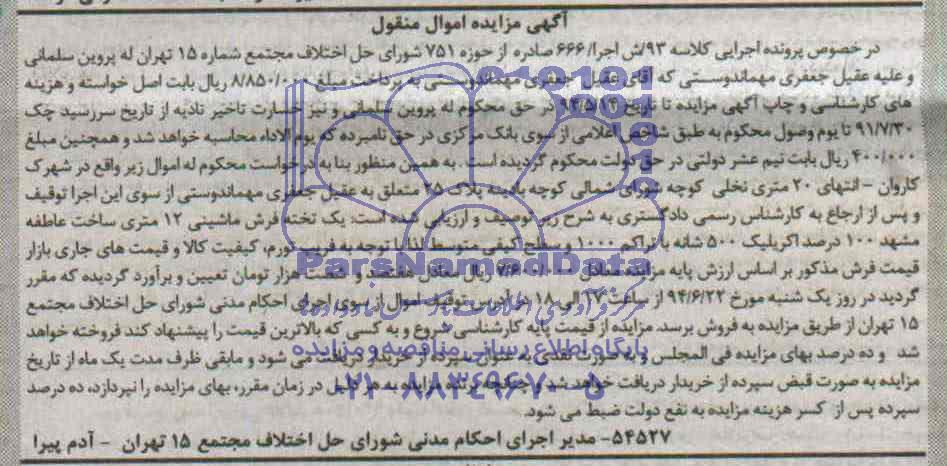 آگهی مزایده اموال منقول
در خصوص پرونده اجرایی کلاسه ۹۳/ش اجرا/۶۶۶ صادره از حوزه ۷۵۱ شورای حل اختلاف مجتمع شماره ۱۵ تهران له پروین سلمانی
و علیه عقیل جعفری مهماندوستی که آقای عقیل جعفری مهماندوستی به پرداخت مبلغ ۸/۸۵۰/۰۰۰ ریال بابت اصل خواسته و هزینه
های کارشناسی و چاپ آگهی مزایده تا تاریخ ۹۴/۵/۱۴ در حق محکوم له پروین سلمانی و نیز خسارت تاخیر تادیه از تاریخ سررسید چک
۹۱/۷/۳۰ تا یوم وصول محکوم به طبق شاخص اعلامی از سوی بانک مرکزی در حق نامبرده که یوم الاداء محاسبه خواهد شد و همچنین مبلغ
۴۰۰/۰۰۰ ریال بابت نیم عشر دولتی در حق دولت محکوم گردیده است. به همین منظور بنا به درخواست محکوم له اموال زیر واقع در شهرک
کاروان – انتهای ۲۰ متری نخلی کوچه شورای شمالی کوچه یاسه پلاک ۲۵ متعلق به عقیل جعفری مهماندوستی از سوی این اجرا توقیف
و پس از ارجاع به کارشناس رسمی دادگستری به شرح زیر توصیف و ارزیابی شده است: یک تخته فرش ماشینی ۱۲ متری ساخت عاطفه
مشهد ۱۰۰ درصد اکریلیک ۵۰۰ شانه با تراکم ۱۰۰۰ و سطح کیفی متوسط لذا با توجه به ضریب تورم، کیفیت کالا و قیمت های جاری بازار
قیمت فرش مذکور بر اساس ارزش پایه مزایده معادل ۷/۶۰۰/۰۰۰ ریال معادل هفتصد و شصت هزار تومان تعیین و برآورد گردیده که مقرر
گردید در روز یک شنبه مورخ ۹۴/۶/۲۲ از ساعت ۱۷ الی ۱۸ در آدرس توقیف اموال از سوی اجرای احکام مدنی شورای حل اختلاف مجتمع
۱۵ تهران از طریق مزایده به فروش برسد. مزایده از قیمت پایه کارشناسی شروع و به کسی که بالاترین قیمت را پیشنهاد کند فروخته خواهد
شد و ده درصد بهای مزایده فی المجلس و به صورت نقدی به عنوان سپرده از خریدار دریافت می شود و مابقی ظرف مدت یک ماه از تاریخ
مزایده به صورت قبض سپرده از خریدار دریافت خواهد شد و چنانچه برنده مزایده به هر دلیل در زمان مقرر، بهای مزایده را نپردازد، ده درصد
سپرده پس از کسر هزینه مزایده به نفع دولت ضبط می شود.
۵۴۵۲۷- مدیر اجرای احکام مدنی شورای حل اختلاف مجتمع ۱۵ تهران – آدم پیرا
ParsNamadData
پایگاه اطلاع رسانی مناقصه و مزایده
۰۲۱-۸۸۳۴۹۶۷۰-۵